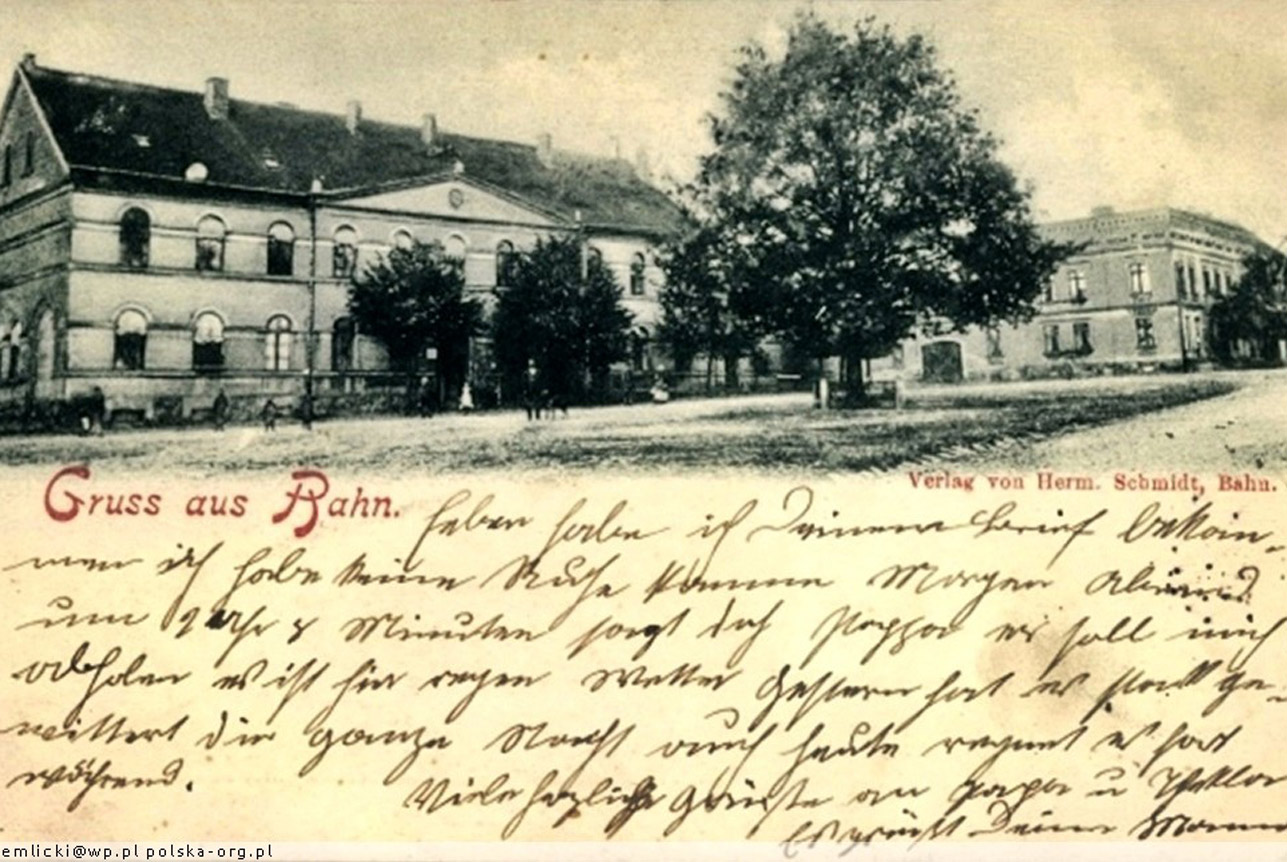 Gruss aus Bahn.
Verlag von Herm. Schmidt, Bahn.
Eeben habe ich Deinem Brief bekom-
men ich habe keine Ruhe komme Morgen Abend
um 9 Uhr 8 Minuten sagt doch Pappa er soll mich
abholen es ist hir regen Wetter Gestern hat es stark ge-
wittert die ganze Nacht auch heute regnet es fort
während.
Viele herzliche Grüsse an Papa u
Es grüsst Deine Mama
emlicki@wp.pl polska-org.pl